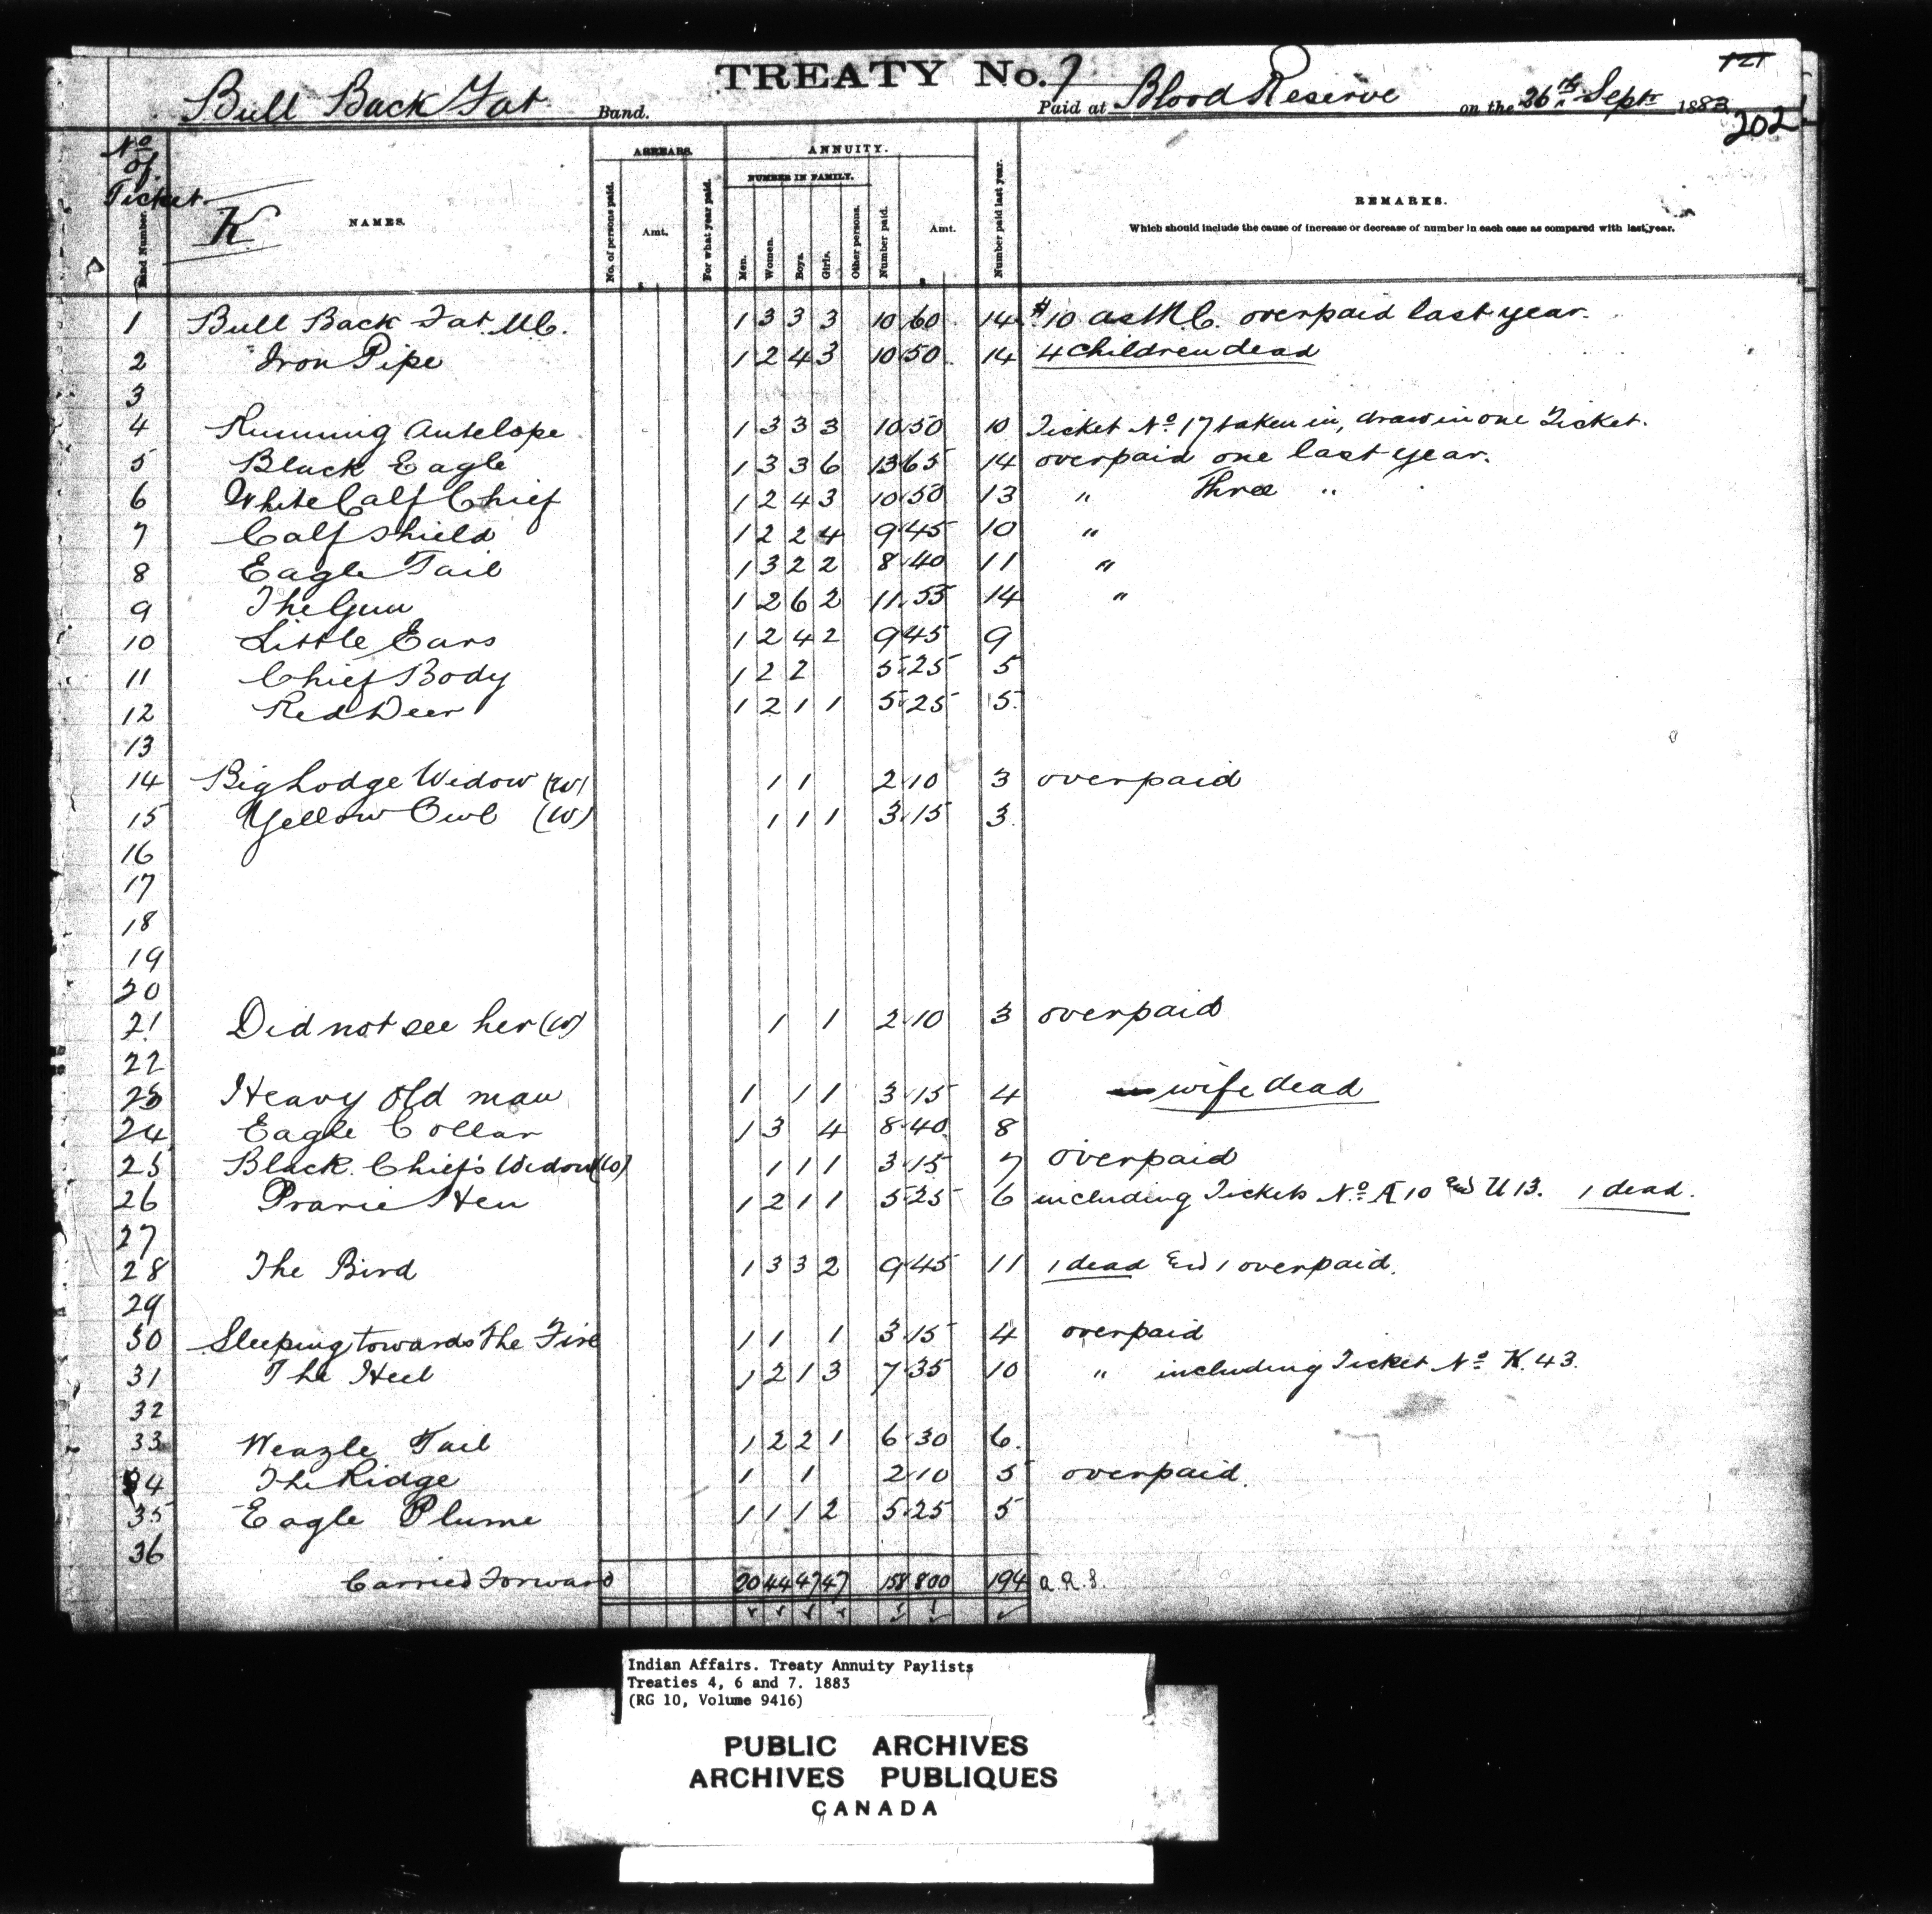 TREATY No. 7
Bull Back Fat Band. Paid at Blood Reserve on the 26th Septr 1883
202
No of Ticket
Band Number.
K
NAMES.
ARREARS.
No. of persons paid.
Amt.
For what year paid.
ANNUITY.
NUMBER IN FAMILY.
Men.
Women.
Boys.
Girls.
Other persons.
Number paid.
Amt.
Number paid last year.
REMARKS.
Which should include the cause of increase or decrease of number in each case as compared with last year.
1 Bull Back Fat M.C. 1 3 3 3 10 60 14 $10 as M.C. overpaid last year.
2 Iron Pipe 1 2 4 3 10 50 14 4 children dead
3
4 Running Antelope 1 3 3 3 10 50 10 Ticket No 17 taken in, draw in one Ticket.
5 Black Eagle 1 3 3 6 13 65 14 overpaid one last year.
6 White Calf Chief 1 2 4 3 10 50 13 " Three "
7 Calf Shield 1 2 2 4 9 45 10 "
8 Eagle Tail 1 3 2 2 8 40 11 "
9 The Gun 1 2 6 2 11 55 14 "
10 Little Ears 1 2 4 2 9 45 9
11 Chief Body 1 2 2 5 25 5
12 Red Deer 1 2 1 1 5 25 5
13
14 Big Lodge Widow (W) 1 1 2 10 3 overpaid
15 Yellow Owl (W) 1 1 1 3 15 3
16
17
18
19
20
21 Did not see her (W) 1 1 2 10 3 overpaid
22
23 Heavy Old man 1 1 1 3 15 4 wife dead
24 Eagle Collar 1 3 4 8 40 8
25 Black Chief's Widow (W) 1 1 1 3 15 7 overpaid
26 Prarie Hen 1 2 1 1 5 25 6 including Tickets No A 10 and U 13. 1 dead.
27
28 The Bird 1 3 3 2 9 45 11 1 dead and 1 overpaid.
29
30 Sleeping towards The Fire 1 1 1 3 15 4 overpaid
31 The Heel 1 2 1 3 7 35 10 " including Ticket No K. 43.
32
33 Weazle Tail 1 2 2 1 6 30 6
34 The Ridge 1 1 2 10 5 overpaid.
35 Eagle Plume 1 1 1 2 5 25 5
36
Carried Forward 20 44 47 47 158 800 194 a.R.S.
Indian Affairs. Treaty Annuity Paylists
Treaties 4, 6 and 7. 1883
(RG 10, Volume 9416)
PUBLIC ARCHIVES
ARCHIVES PUBLIQUES
CANADA